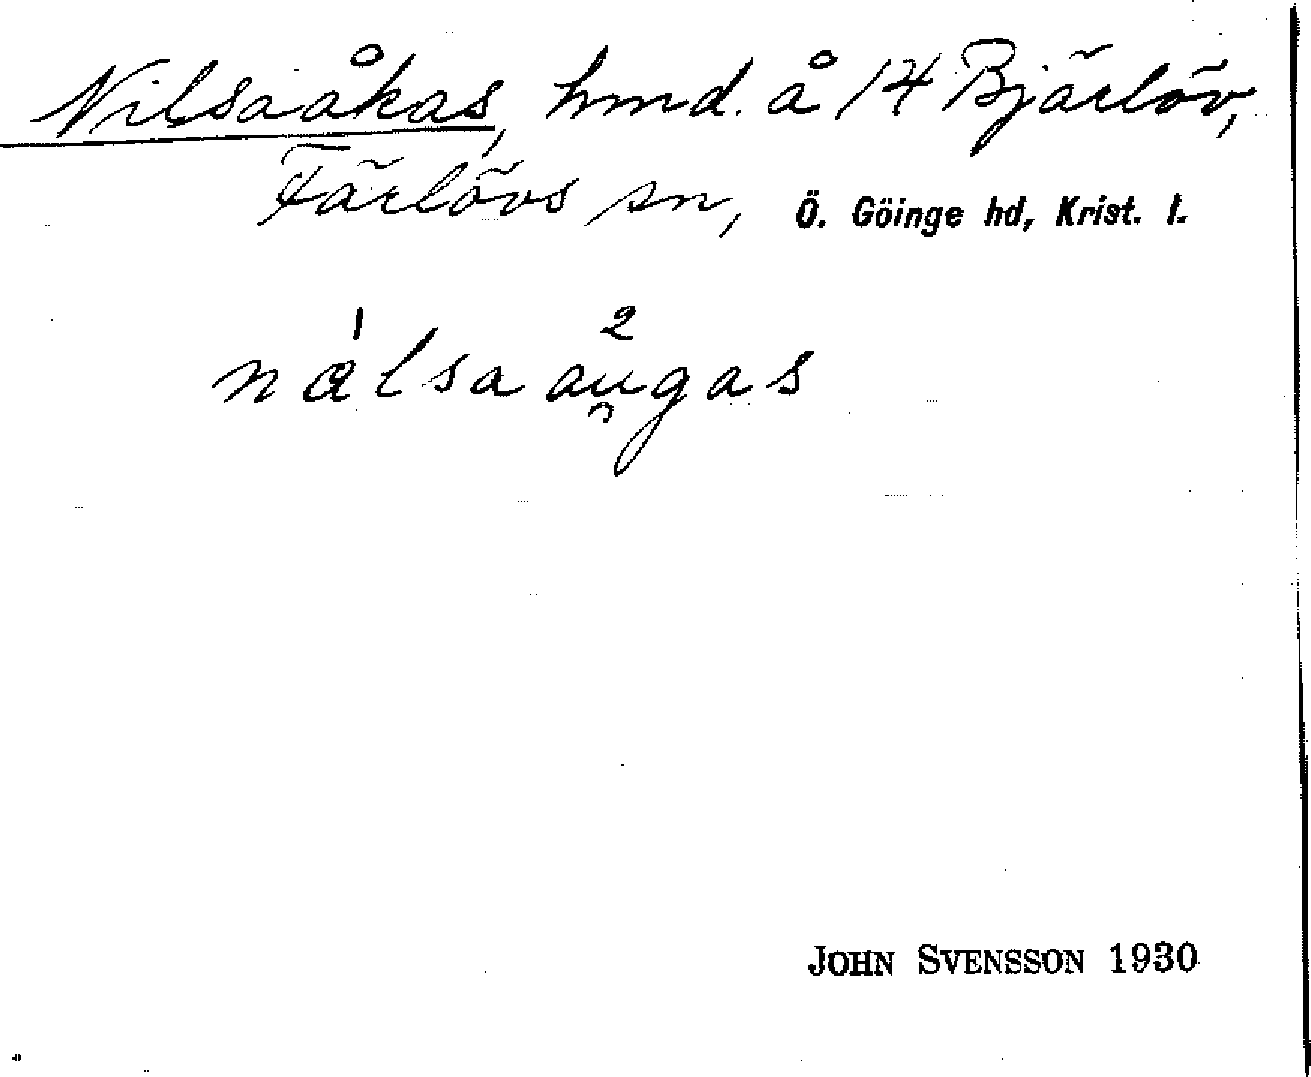 Nilsaåkas, hmd. å 14 Bjärlöv,
Färlövs sn, Ö. Göinge hd, Krist. l.
nalsa au̯gas
JOHN SVENSSON 1930